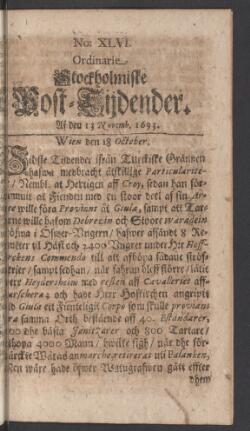 No: XLVI.
Ordinarie
Stockholmiske
Post-Tijdender.
Af den 13 Novemb. 1693.
Wien den 18 October.
Sidste Tijdender ifrån Turckiske Gräntzen
hafwa medbracht åtskillige Particulariteter
/ Nembl. at Hertigen aff Croy, sedan han för-
at Fienden med en stoor deel af sin
wille föra Proviant åt Giula, sampt att Tat-
wille hafwa Debrezin och Slvoet Waradein
i Öfwer-Vngern / hafwer affändt 8 Re-
til Häst och 2400 Vngrer under Hr Hoff-
Commendo till att afböija sådant
/ sampt sedhan / när sahran bleff större / lätit
Heydersheim med resten aff Cavalleriet aff-
och hade Herr Hoffkirchen angripit
Giula ett Fienteligit Corps som skulle provian-
samma Orth bestående aff 40. Estandarer,
dhe bästa Janitzarer och 800 Tartare /
4000 Mann / hwilke sigh / när dhe för-
Wåras anmarche retirerat uti Palanken,
wåre hade öfwer Watugrafwen gått effter
dhem